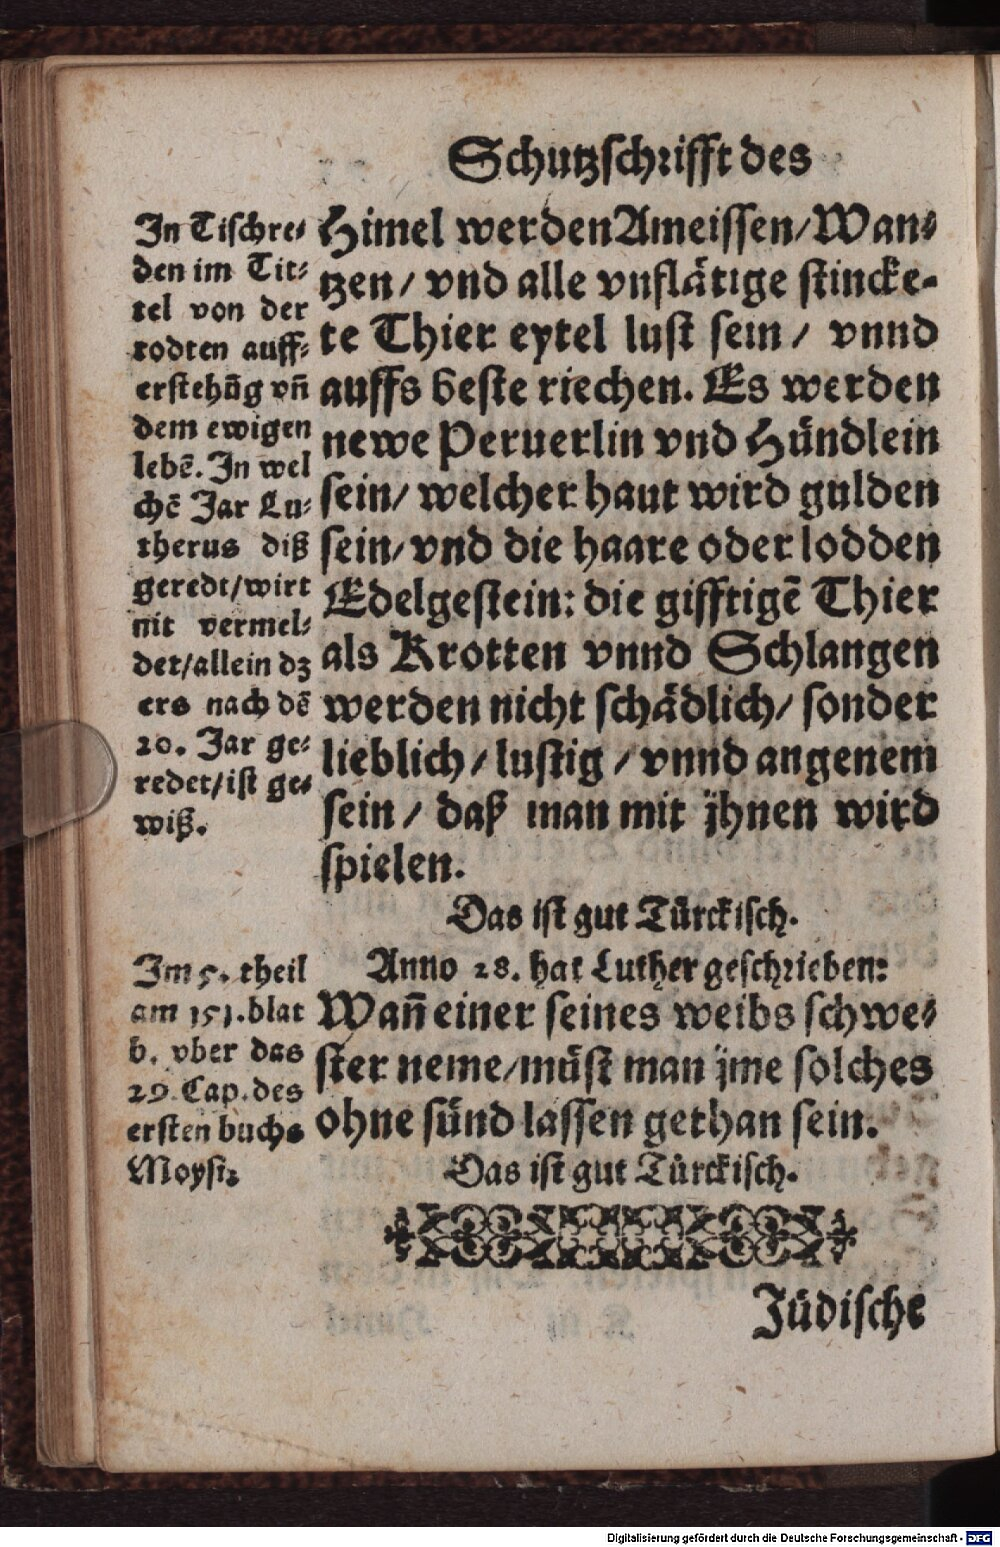 Schutzschrifft des
In Tischre⸗
den im Tit⸗
tel von der
todten auff⸗
erstehūg vn̄
dem ewigen
lebē. In wel
chē Jar Lu⸗
therus diß
geredt/wirt
nit vermel⸗
det/allein dz
ers nach dē
20. Jar ge⸗
redet/ist ge⸗
wiß.
Himel werden Ameissen/Wan⸗
tzen/ vnd alle vnflätige stincke-
te Thier eytel lust sein/ vnnd
auffs beste riechen. Es werden
newe Peruerlin vnd Hündlein
sein/ welcher haut wird gulden
sein/ vnd die haare oder lodden
Edelgestein: die gifftigē Thier
als Krotten vnnd Schlangen
werden nicht schädlich/ sonder
lieblich/ lustig/ vnnd angenem
sein/ daß man mit jhnen wird
spielen.
Das ist gut Türckisch.
Im 5. theil
am 151. blat
b. vber das
29. Cap. des
ersten buchs
Moysi.
Anno 28. hat Luther geschrieben:
Wan̄ einer seines weibs schwe⸗
ster neme/müst man jme solches
ohne sünd lassen gethan sein.
Das ist gut Türckisch.
Jüdische
Digitalisierung gefördert durch die Deutsche Forschungsgemeinschaft - DFG